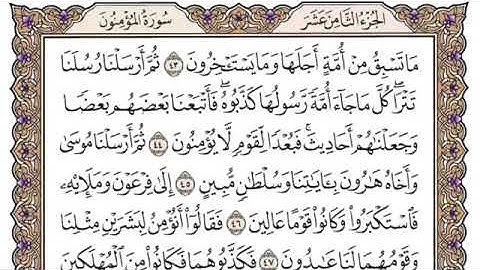 الجزء الثامن عشر
سورة المؤمنون
مَا تَسْبِقُ مِنْ أُمَّةٍ أَجَلَهَا وَمَا يَسْتَـْٔخِرُونَ ٤٣ ثُمَّ أَرْسَلْنَا رُسُلَنَا
تَتْرَا ۖ كُلَّ مَا جَآءَ أُمَّةً رَّسُولُهَا كَذَّبُوهُ ۚ فَأَتْبَعْنَا بَعْضَهُم بَعْضًا
وَجَعَلْنَـٰهُمْ أَحَادِيثَ ۚ فَبُعْدًا لِّقَوْمٍ لَّا يُؤْمِنُونَ ٤٤ ثُمَّ أَرْسَلْنَا مُوسَىٰ
وَأَخَاهُ هَـٰرُونَ بِـَٔايَـٰتِنَا وَسُلْطَـٰنٍ مُّبِينٍ ٤٥ إِلَىٰ فِرْعَوْنَ وَمَلَإِي۟هِۦ
فَٱسْتَكْبَرُوا۟ وَكَانُوا۟ قَوْمًا عَالِينَ ٤٦ فَقَالُوٓا۟ أَنُؤْمِنُ لِبَشَرَيْنِ مِثْلِنَا
وَقَوْمُهُمَا لَنَا عَـٰبِدُونَ ٤٧ فَكَذَّبُوهُمَا فَكَانُوا۟ مِنَ ٱلْمُهْلَكِينَ